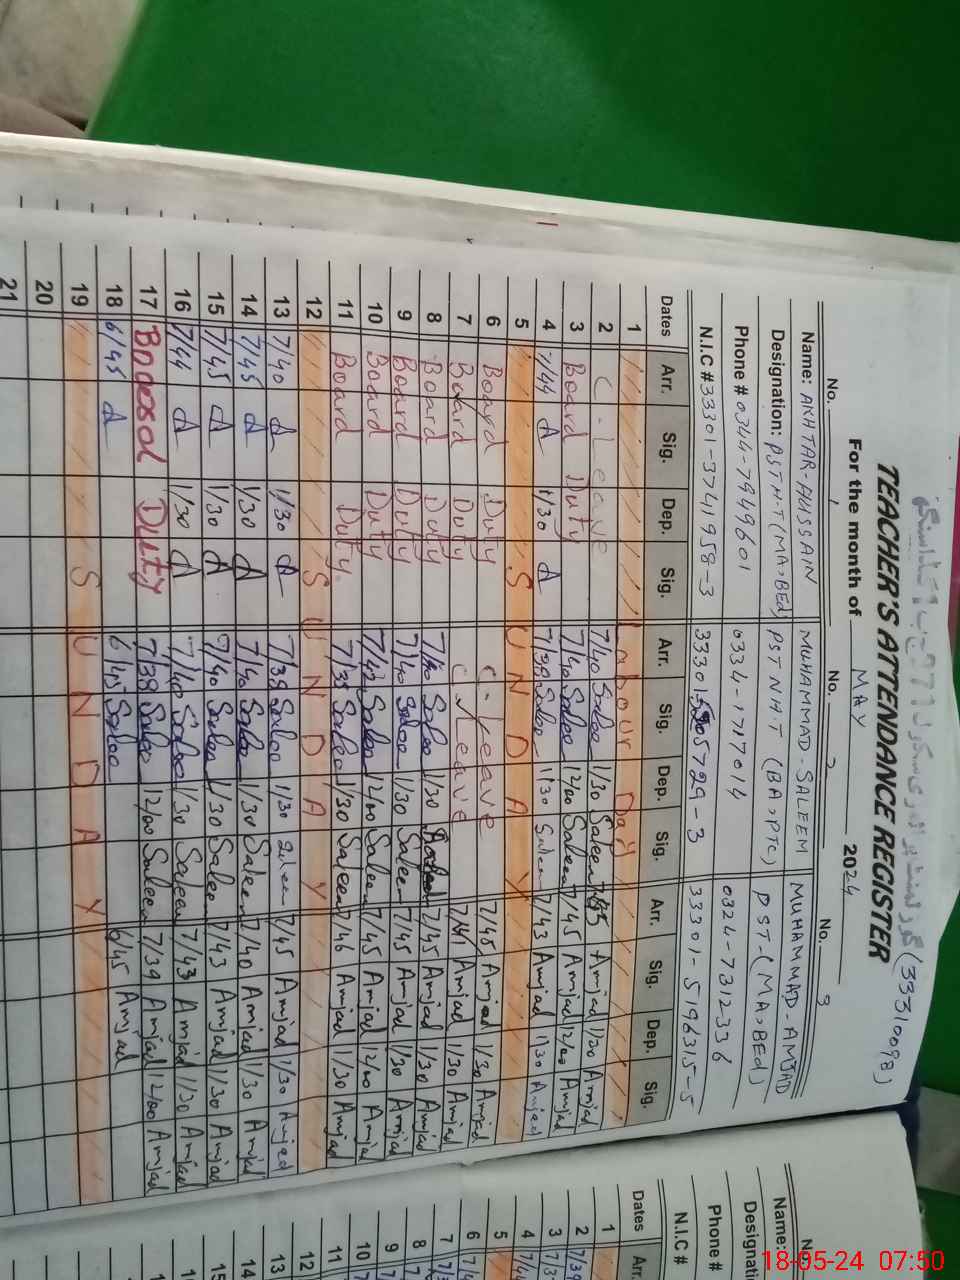 (33310098)
TEACHER'S ATTENDANCE REGISTER
For the month of MAY 2024
No. 1 No. 2 No. 3
Name: AKHTAR-HUSSAIN MUHAMMAD-SALEEM MUHAMMAD-AMJAD
Designation: PSTH.T(MA,BEd) PST NH.T (BA,PTC) PST-(MA,BEd)
Phone # 0344-7949601 0334-1717014 0324-7312336
N.I.C # 33301-3741958-3 5729-3 33301-5196315-5
Dates Arr. Sig. Dep. Sig. Arr. Sig. Dep. Sig. Arr. Sig. Dep. Sig.
1 Labour Day
2 C-Leave 7/40 Salee 1/30 Saleem Amjad 1/30 Amjad
3 Board Duty 7/40 Salee 12/00 Saleem 7/45 Amjad 12/00 Amjad
4 7/44 A 1/30 A Salee 1/30 Saleem 7/43 Amjad 1/30 Amjad
5 SUNDAY
6 Board Duty C-Leave 7/45 Amjad 1/30 Amjad
7 Board Duty C-Leave 7/41 Amjad 1/30 Amjad
8 Board Duty 7/40 Salee 1/30 7/45 Amjad 1/30 Amjad
9 Board Duty 7/40 Salee 1/30 Saleem 7/45 Amjad 1/30 Amjad
10 Board Duty 7/42 Salee 12/00 Saleem 7/45 Amjad 12/00 Amjad
11 Board Duty. 7/35 Salee 1/30 Saleem 7/46 Amjad 1/30 Amjad
12 SUNDAY
13 7/40 A 1/30 A 7/38 Salee 1/30 Saleem 7/45 Amjad 1/30 Amjad
14 7/45 A 1/30 A 7/40 Salee 1/30 Saleem 7/40 Amjad 1/30 Amjad
15 7/45 A 1/30 A 7/40 Salee 1/30 Saleem 7/43 Amjad 1/30 Amjad
16 7/44 A 1/30 A 7/40 Salee 1/30 Saleem 7/43 Amjad 1/30 Amjad
17 Duty 7/38 Salee 12/00 Saleem 7/39 Amjad 12/00 Amjad
18 6/45 A 6/45 Salee 6/45 Amjad
19 SUNDAY
20
21
Name:
Designati
Phone #
N.I.C #
Dates Arr.
1
2 7/39
3
4
5
6
7
8
9
10
11
12
13
14
15
18-05-24 07:50